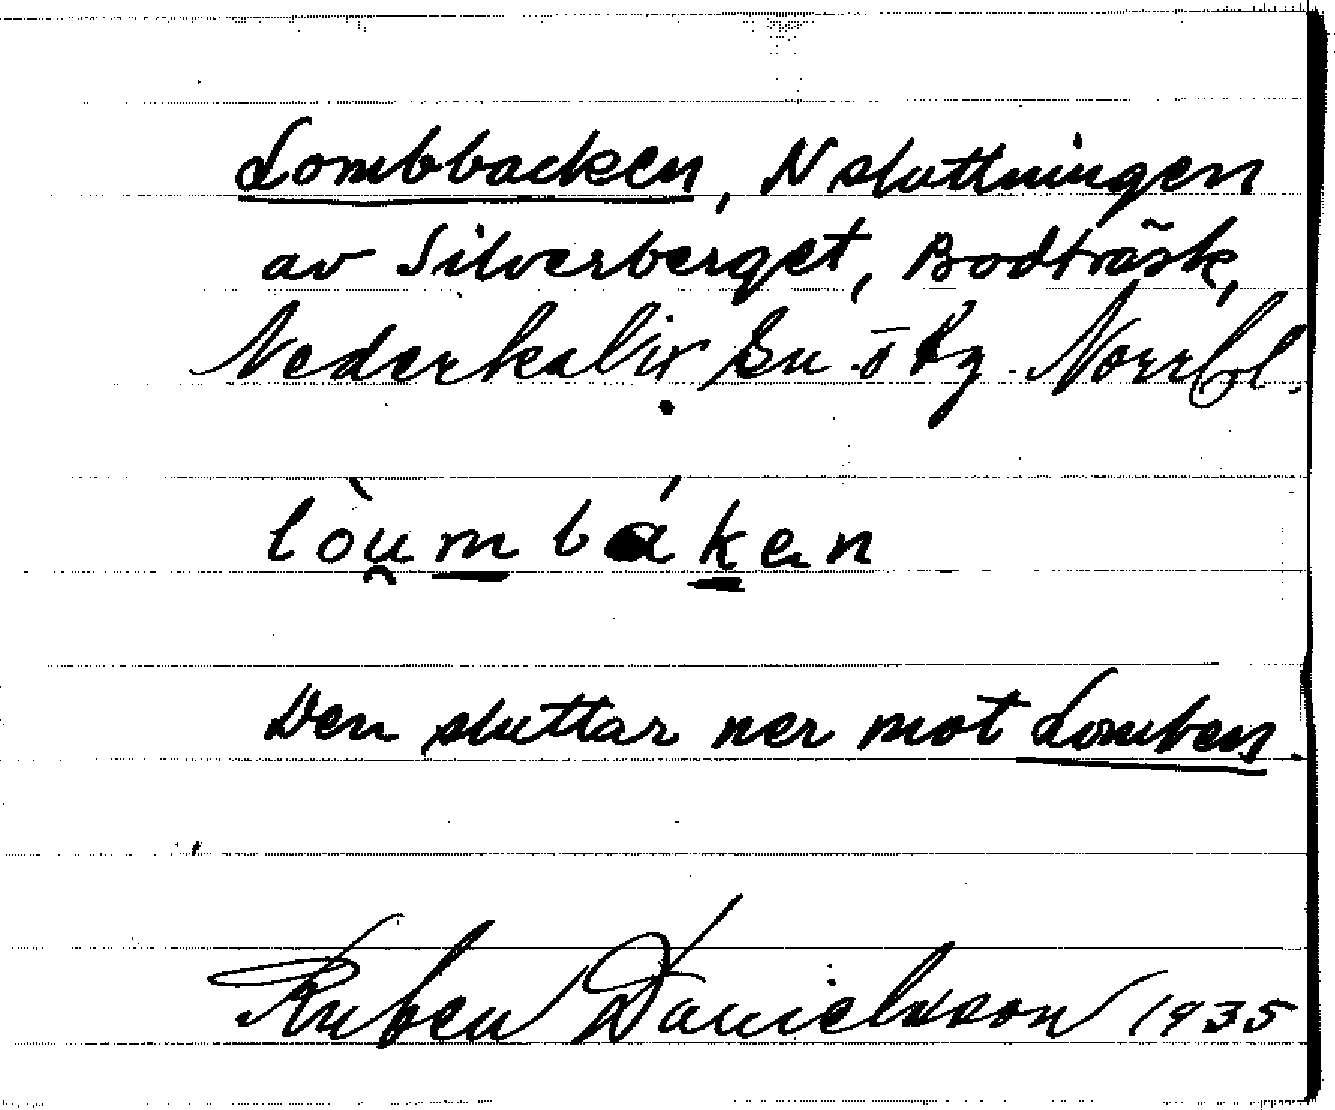 Lombbacken, N sluttningen
av Silverberget, Bodträsk,
Nederkalix sn ö bg. Norrbl.
lòu̯m̲bák̲en
Den sluttar ner mot Lomben.
Ruben Danielsson 1935